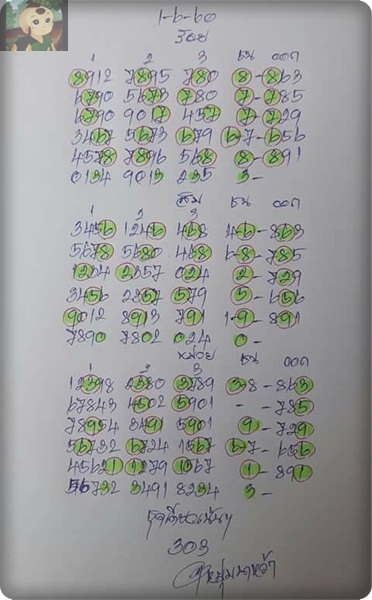 1-6-60
ร้อย
1 2 3 ชน ออก
8912 7895 780 8-863
6790 5673 780 7-785
6790 9017 457 7-729
3467 5673 679 67-656
4578 7896 568 8-891
0134 9013 235 3-
สิบ ชน ออก
1 2 3
3456 1246 468 46-863
5678 5680 468 68-785
1234 2357 024 2-729
3456 2857 579 5-656
9012 8913 791 1-9-891
7890 7802 024 0-
หน่วย ชน ออก
1 2 3
12398 2380 3789 38-863
67843 4502 5901 - -785
78954 3491 5901 9-729
56732 6724 1567 67-656
45621 1279 1567 1-891
56732 3491 8234 3-
303